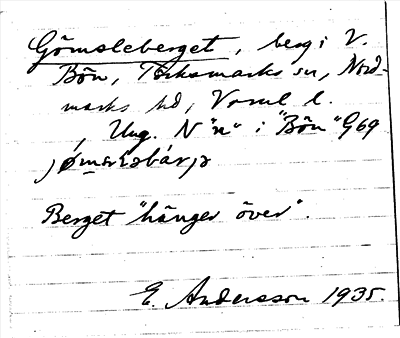 Gömsleberget, berg i V.
Bön, Torskmarks sn, Nord-
marks hd, Verml. l.
Ung. N "n" i "Bön" G69
Berget "hänger över".
E. Andersson 1935.